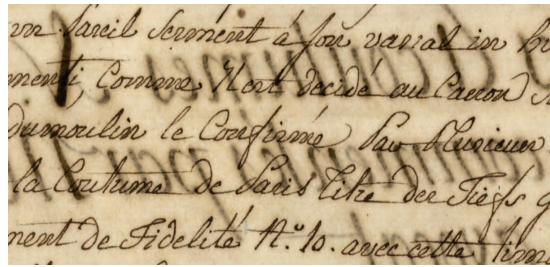 un pareil serment a son vassal in
menti, Comme il est decidé au Canon
Dumoulin le Confirme Par Plusieurs
la Coutume de Paris titre des Fiefs
ment de Fidelité N.º 10. avec cette